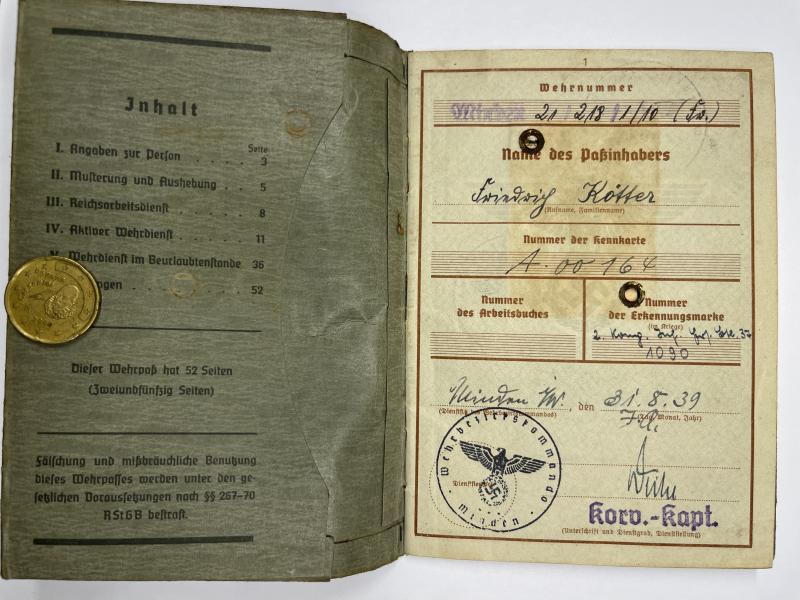 Inhalt
Seite
I. Angaben zur Person . . . . 3
II. Musterung und Aushebung . . 5
III. Reichsarbeitsdienst . . . . . 8
IV. Aktiver Wehrdienst . . . . . 11
V. Wehrdienst im Beurlaubtenstande 36
52
Dieser Wehrpaß hat 52 Seiten
(Zweiundfünfzig Seiten)
Fälschung und mißbräuchliche Benutzung
dieses Wehrpasses werden unter den ge-
setzlichen Voraussetzungen nach §§ 267–70
RStGB bestraft.
1
Wehrnummer
Minden 21 / 218 / 1/10 (Fw.)
Name des Paßinhabers
Friedrich Kötter
(Rufname, Familienname)
Nummer der Kennkarte
A. 00164
Nummer
des Arbeitsbuches
Nummer
der Erkennungsmarke
(im Kriege)
2. Komp. Inf.
1090
Minden i/W., den 31.8.39
(Tag, Monat, Jahr)
Wehrbezirkskommando
Minden
Korv.-Kapt.
(Unterschrift und Dienstgrad, Dienststellung)